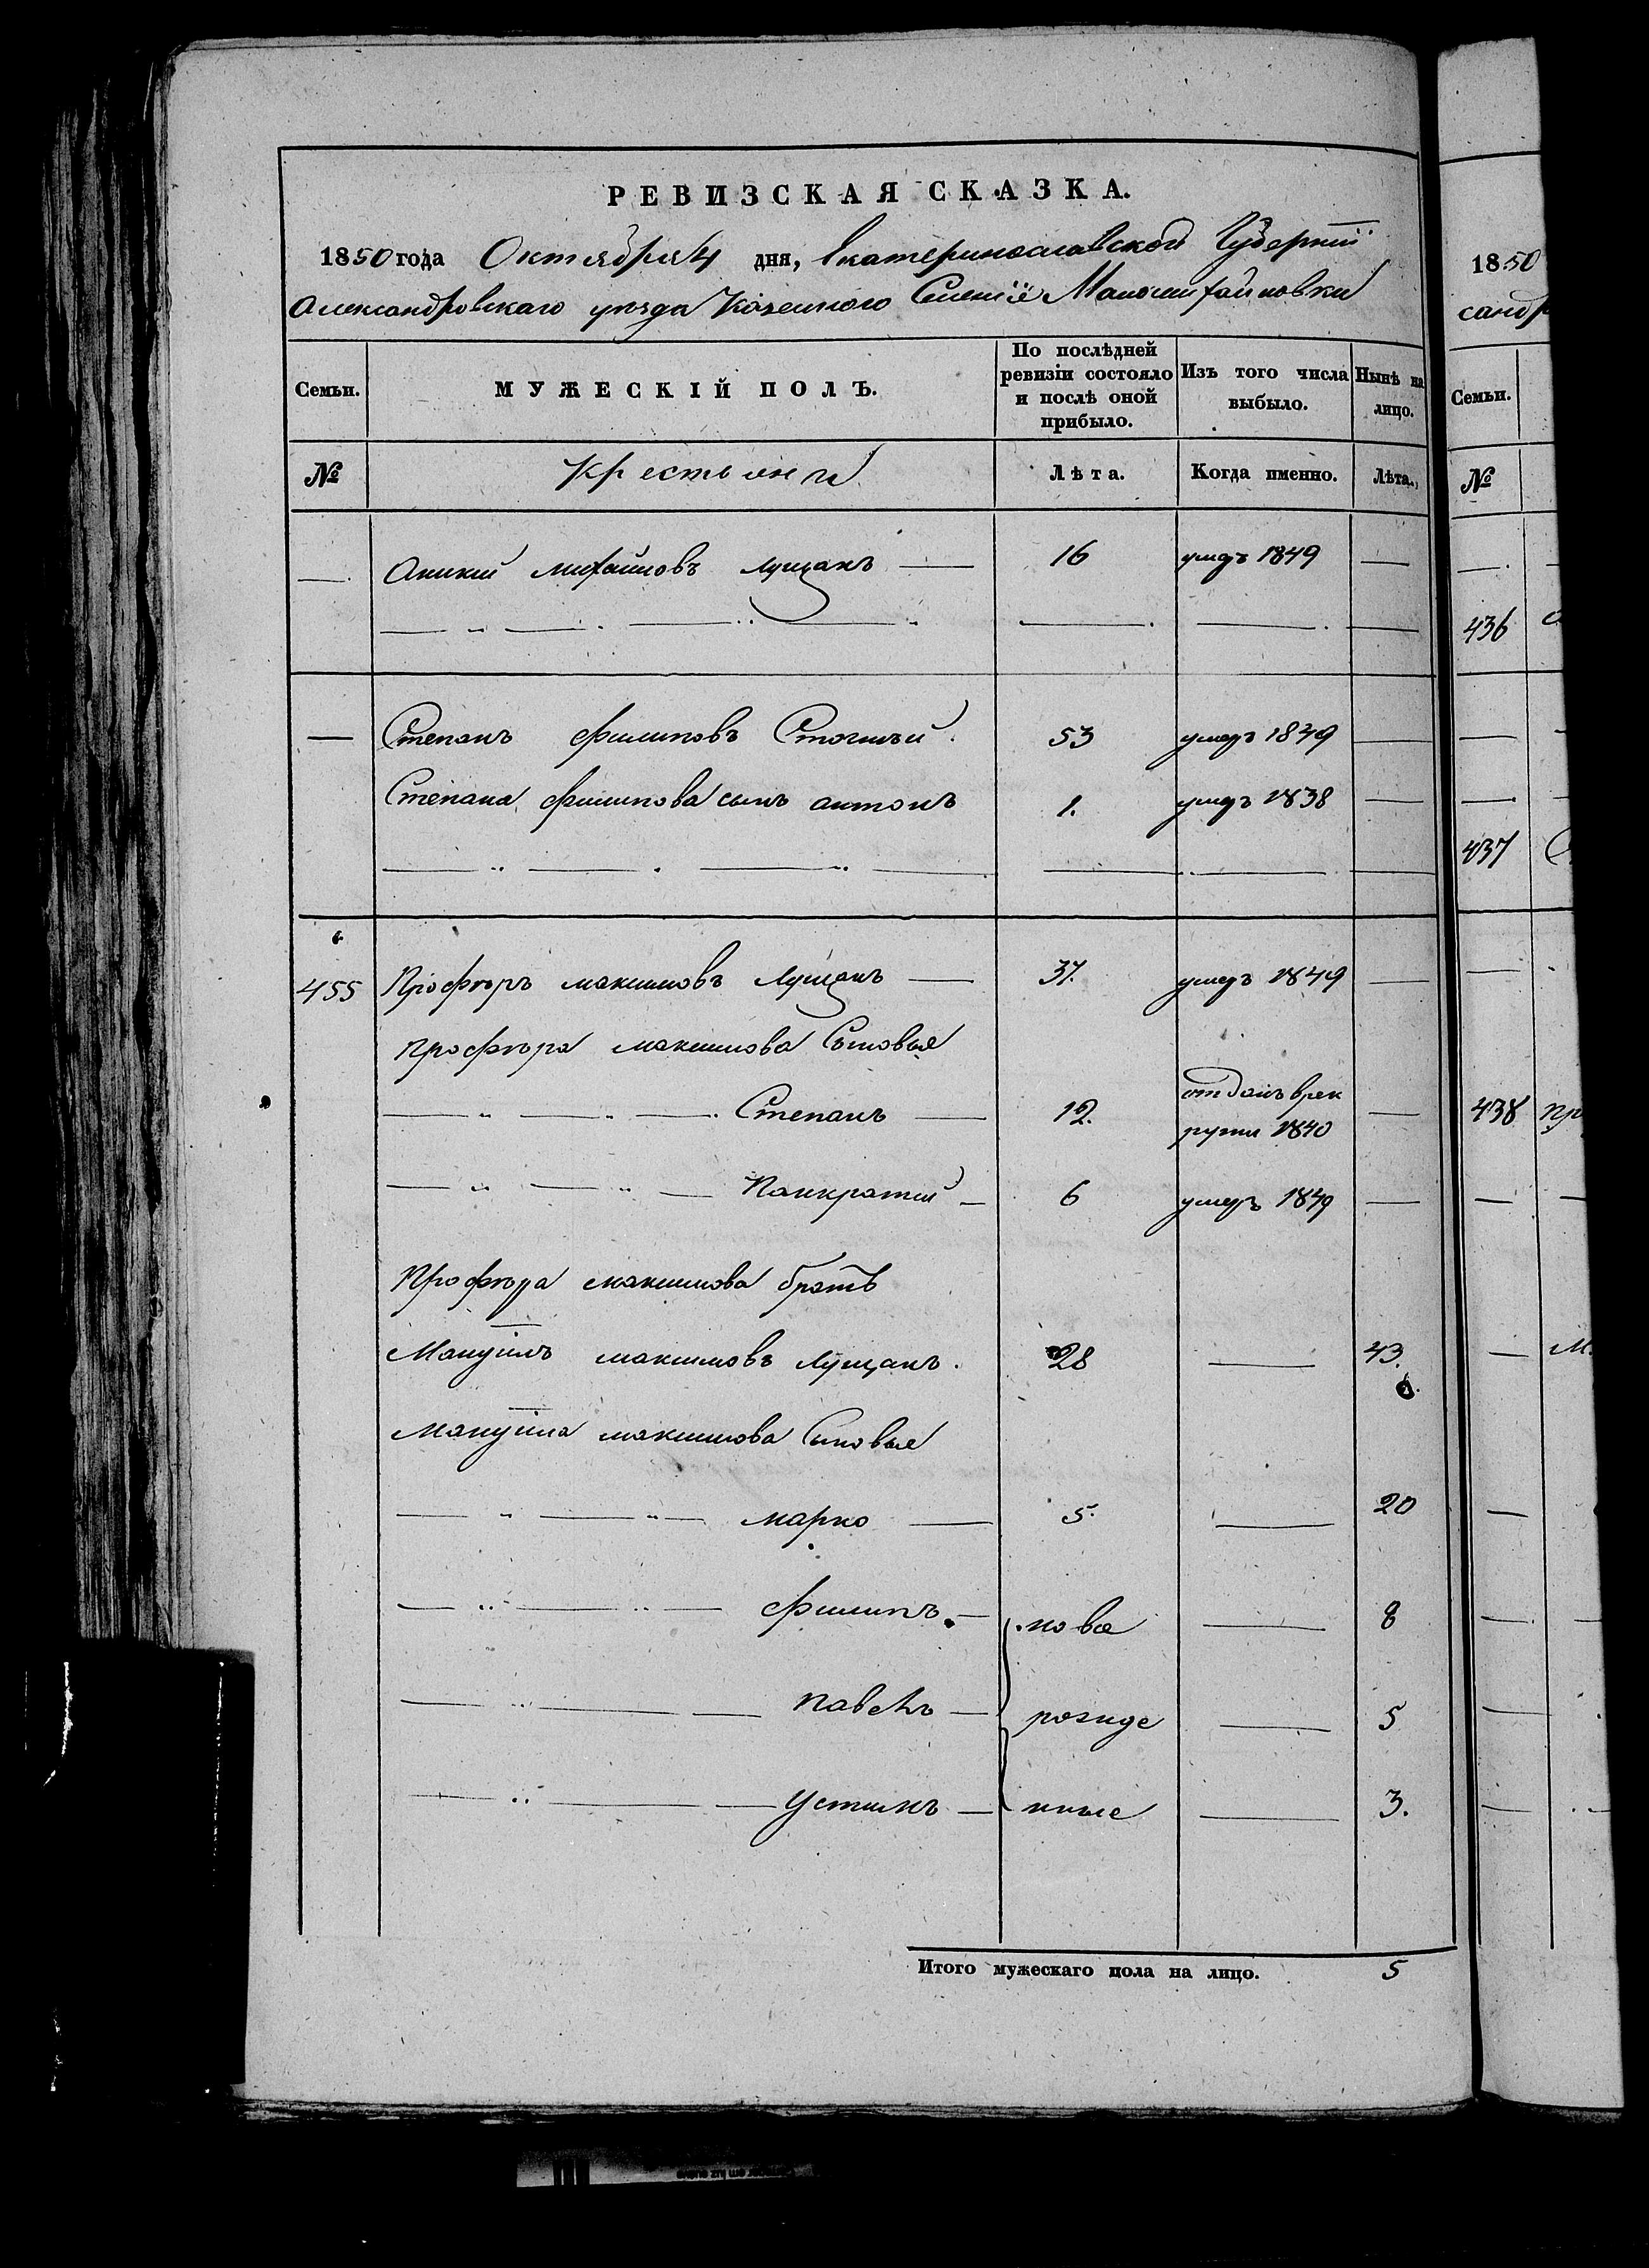 РЕВИЗСКАЯ СКАЗКА.
1850 года Октября 4 дня, Екатеринославской Губернии
Александровскаго уезда Казенного Селенія Маломихайловки
Семьи.
МУЖЕСКІЙ ПОЛЪ.
По послѣдней ревизіи состояло и послѣ оной прибыло.
Изъ того числа выбыло.
Нынѣ на лицо.
№ Крестьяни Лѣта. Когда именно. Лѣта.
— Аникий Михайловъ Лущакъ — 16 умеръ 1849 —
— Степанъ Филиповъ 53 умеръ 1849 —
Степана Филипова сынъ антонъ 1. умеръ 1838 —
455 Профиръ максимовъ Лущакъ — 37. умеръ 1849 —
Профира максимова Сыновья
Степанъ — 12. отданъ врек
рути 1840 —
Панкратий — 6 умеръ 1849 —
Профира максимова братъ
Мануилъ максимовъ Лущакъ. 28 — 43.
Мануила максимова Сыновья
марко — 5. — 20
Филипъ — нова — 8
павелъ — рожде — 5
Устинъ — нные — 3.
Итого мужескаго пола на лицо. 5
1850
санд
Семьи.
№
436
437
438 пр
М.